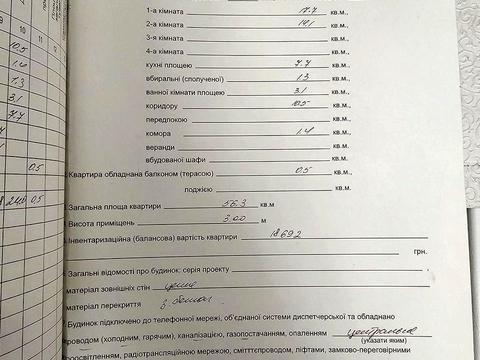 1-а кімната 17.7 кв.м.,
2-а кімната 14.1 кв.м.,
3-я кімната кв.м.,
4-а кімната кв.м.,
9 кухні площею 7.7 кв.м.,
10 11 вбиральні (сполученої) 1.3 кв.м.,
10.5 ванної кімнати площею 3.1 кв.м.,
1.4 коридору 10.5 кв.м.,
1.3 передпокою кв.м.,
3.1 комора 1.4 кв.м.,
7.7 веранди кв.м.,
вбудованої шафи кв.м.,
0.5 Квартира обладнана балконом (терасою) 0.5 кв.м.,
поджією кв.м.,
0.5 Загальна площа квартири 56.3 кв.м
Висота приміщень 3.00 м
Інвентаризаційна (балансова) вартість квартири 18692
грн.
Загальні відомості про будинок: серія проекту
матеріал зовнішніх стін
матеріал перекриття
Будинок підключено до телефонної мережі, об'єднаної системи диспетчерської та обладнано
проводом (холодним, гарячим), каналізацією, газопостачанням, опаленням
(указати яким)
освітленням, радіотрансляційною мережею, сміттєпроводом, ліфтами, замково-переговорними